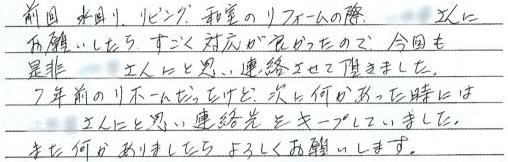 前回 水回り、リビング、和室のリフォームの際、 さんに
お願いしたら、すごく対応が良かったので、今回も
是非 さんにと思い連絡させて頂きました。
7年前のリホームだったけど、次に何かあった時には
さんにと思い連絡先をキープしていました。
また何かありましたらよろしくお願いします。